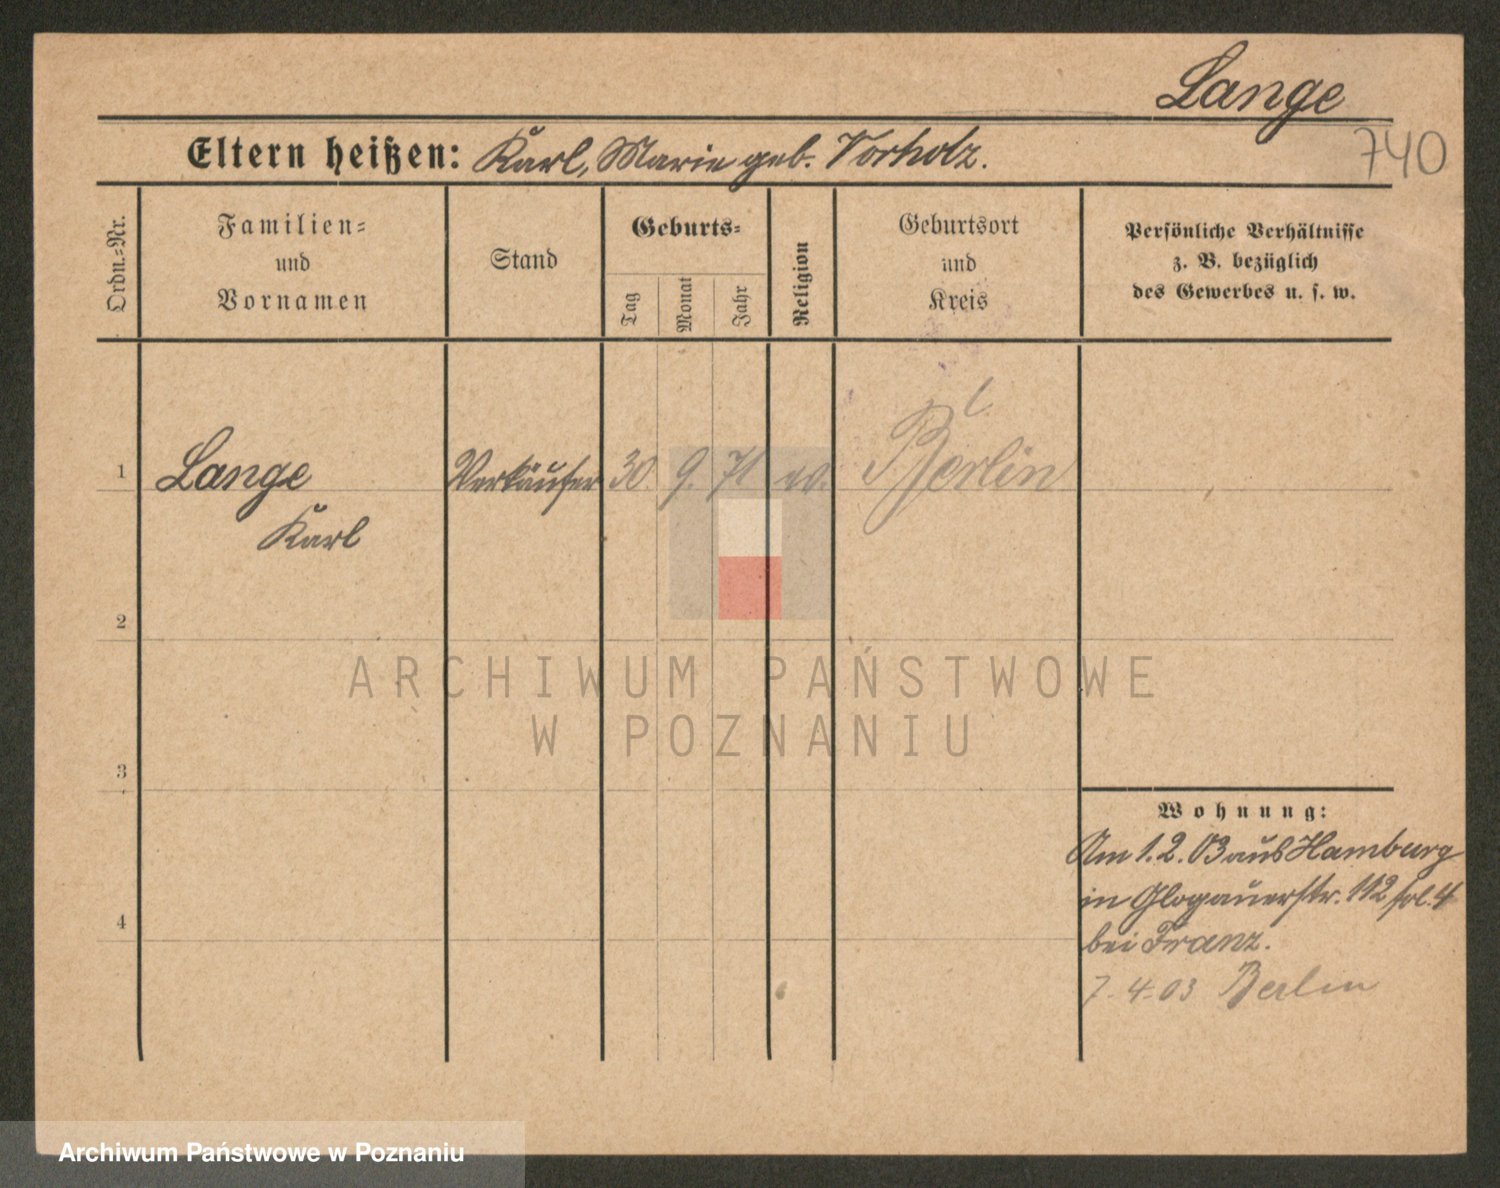 Lange
740
Eltern heißen: Karl, Marie geb. Vorholz.
Ordn.=Nr.
Familien=
und
Vornamen
Stand
Geburts=
Tag
Monat
Jahr
Religion
Geburtsort
und
Kreis
Persönliche Verhältnisse
z. B. bezüglich
des Gewerbes u. s. w.
1
Lange
Karl
Verkäufer
30.
9.
71
ev.
Berlin
2
3
4
Wohnung:
Am 1.2.03 aus Hamburg
in Glogauerstr. 112
bei Franz.
7.4.03 Berlin
ARCHIWUM PAŃSTWOWE
W POZNANIU
Archiwum Państwowe w Poznaniu